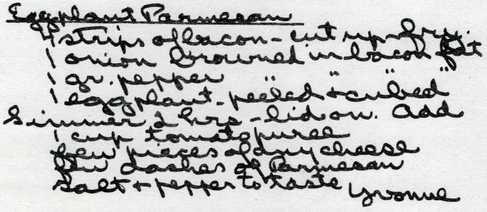 Eggplant Parmesan
4 strips of bacon - cut up - fry.
1 onion browned in bacon fat
1 gr. pepper
1 eggplant - peeled + "cubed"
Simmer 2 hrs - lid on. Add
1 cup tomato puree
few pieces of any cheese
few dashes of Parmesan
salt + pepper to taste
Yvonne